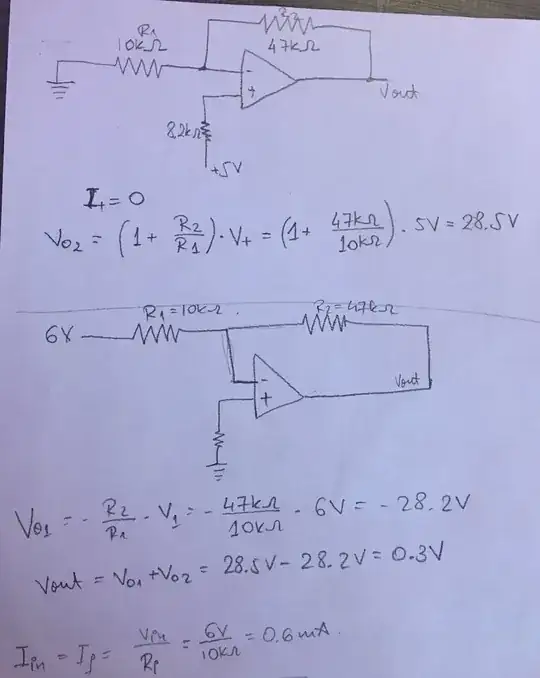 R1
10kΩ
R2
47kΩ
-
+
Vout
8.2kΩ
+5V
I+ = 0
Vo2 = (1 + R2/R1) · V+ = (1 + 47kΩ/10kΩ) · 5V = 28.5V
R1=10kΩ.
R2=47kΩ
6V
-
+
Vout
Vo1 = - R2/R1 · V1 = - 47kΩ/10kΩ · 6V = -28.2V
Vout = Vo1 + Vo2 = 28.5V - 28.2V = 0.3V
Iin = If = Vin/R1 = 6V/10kΩ = 0.6mA.